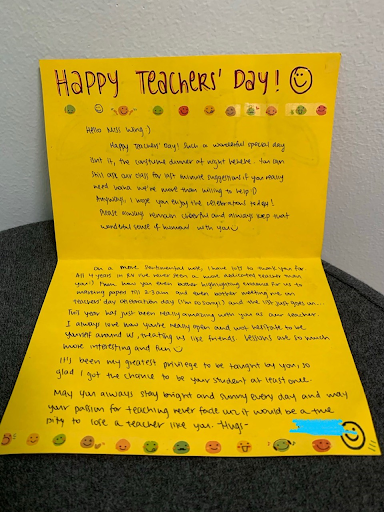 Happy Teachers' Day!
Hello Miss Wing :)
Happy Teachers' Day! Such a wonderful special day
isn't it, the costume dinner at night hehehe. You can
still ask our class for last minute suggestions if you really
need haha we're more than willing to help :D
Anyways, I hope you enjoy the celebrations today!
Please always remain cheerful and always keep that
wonderful sense of humour with you
On a more sentimental note, I have lots to thank you for.
All 4 years in RV I've never seen a more dedicated teacher than
you! From how you even bother highlighting for us to
marking papers till 2-3am and even bother meeting me on
Teachers' day celebration day (I'm so sorry!) and the list just goes on...
This year has just been really amazing with you as our teacher.
I always love how you're really open and not hesitate to be
yourself around us, treating us like friends. Lessons are so much
more interesting and fun
It's been my greatest privilege to be taught by you, so
glad I got the chance to be your student at least once.
May you always stay bright and sunny every day and may
your passion for teaching never fade cuz it would be a true
pity to lose a teacher like you. -Hugs-